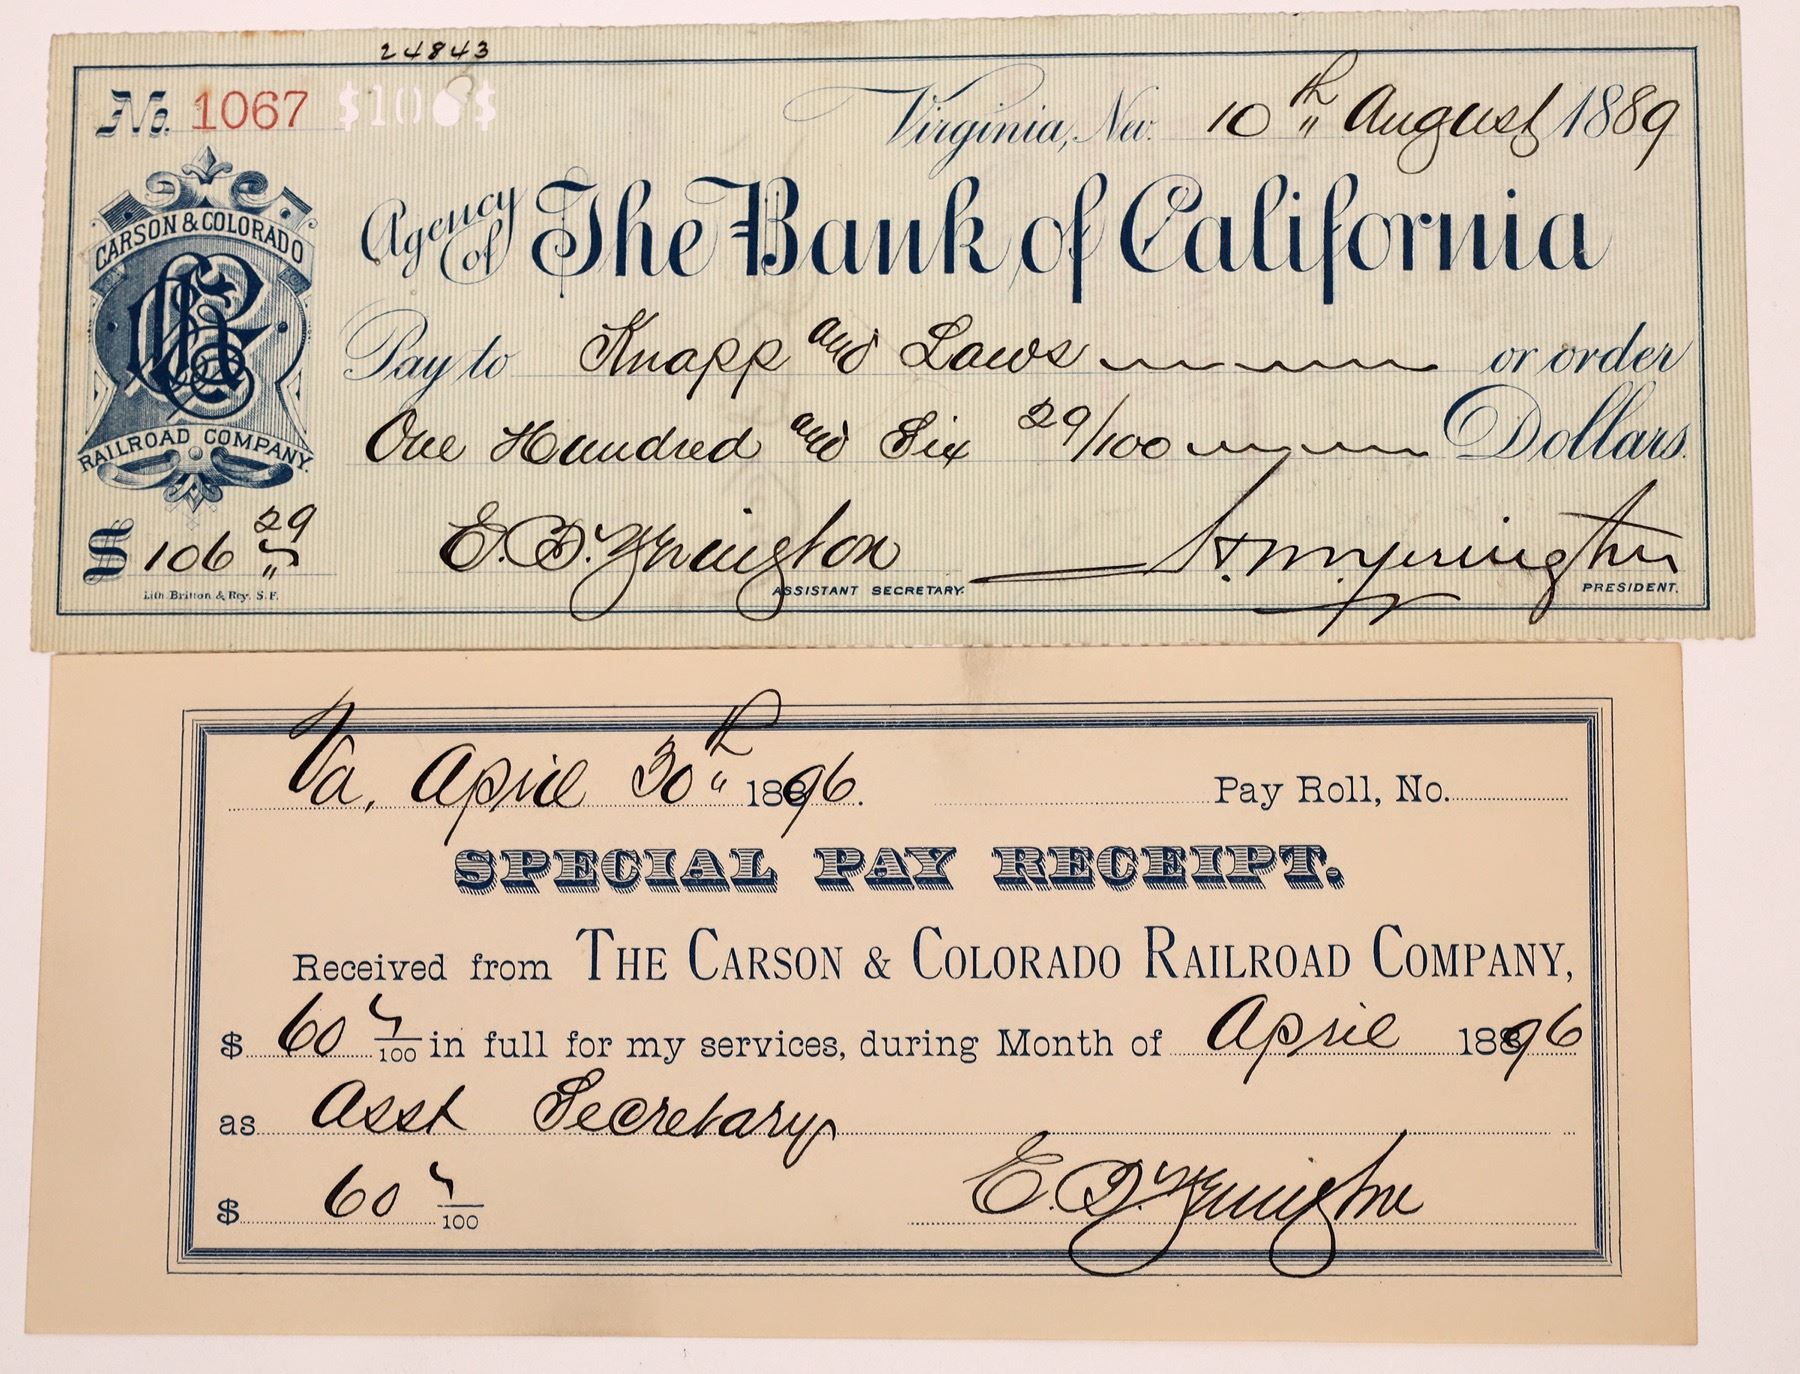 24843
No. 1067 $106$
Virginia, Nev. 10th " August 1889
CARSON & COLORADO
RAILROAD COMPANY.
Agency of The Bank of California
Pay to Knapp and Laws or order
One Hundred and Six 29/100 Dollars.
$ 106 29
E. B. Yerington H. M. Yerington
ASSISTANT SECRETARY. PRESIDENT.
Lith. Britton & Rey. S. F.
Va, April 30th " 1896.
Pay Roll, No.
SPECIAL PAY RECEIPT.
Received from THE CARSON & COLORADO RAILROAD COMPANY,
$ 60 /100 in full for my services, during Month of April 1896
as Asst Secretary
$ 60 /100 E. B. Yerington